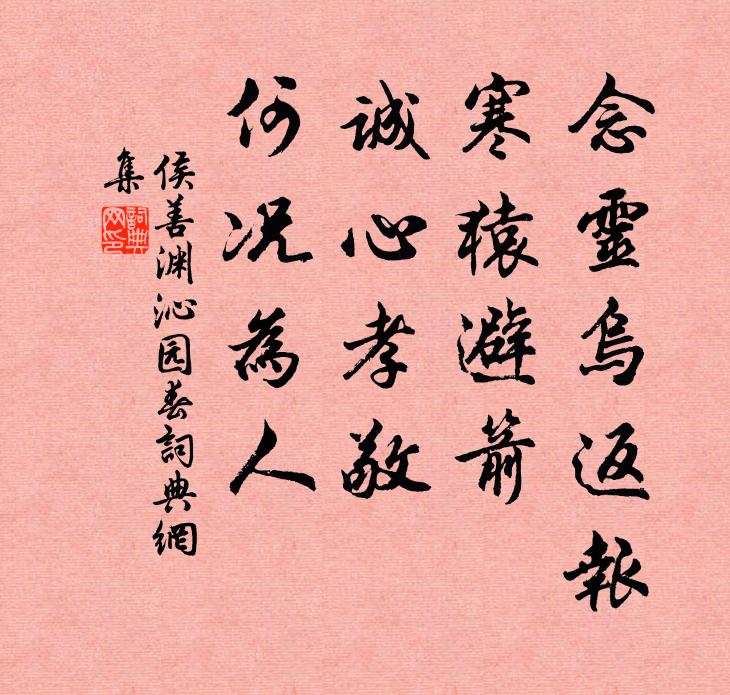 念靈烏返報
寒猿避箭
誠心孝敬
何況為人
侯善渊沁园春詞典網
集
詞典
网印